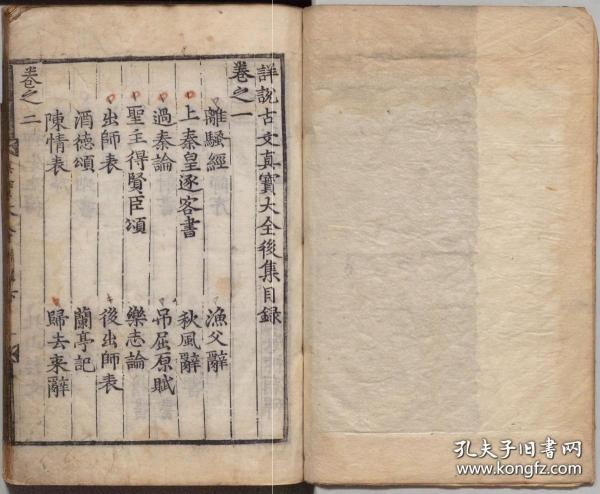 詳說古文真寳大全後集目録
卷之一
離騷經 漁父辭
上秦皇逐客書 秋風辭
過秦論 吊屈原賦
聖主得賢臣頌 樂志論
出師表 後出師表
酒德頌 蘭亭記
陳情表 歸去來辭
卷之二
孔夫子旧书网
www.kongfz.com